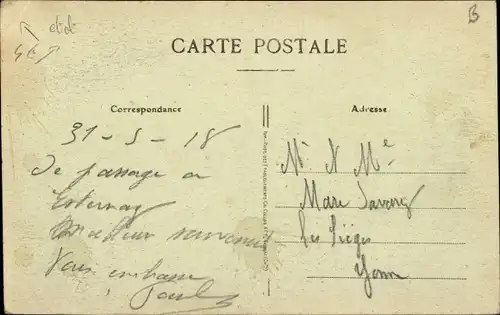 CARTE POSTALE
Correspondance
Adresse
31-5-18
De passage a
Esternay
Meilleur souvenir
Vous embrasse
Paul
Mr & Me
Marc Savary
Les Sièges
Yonne
B